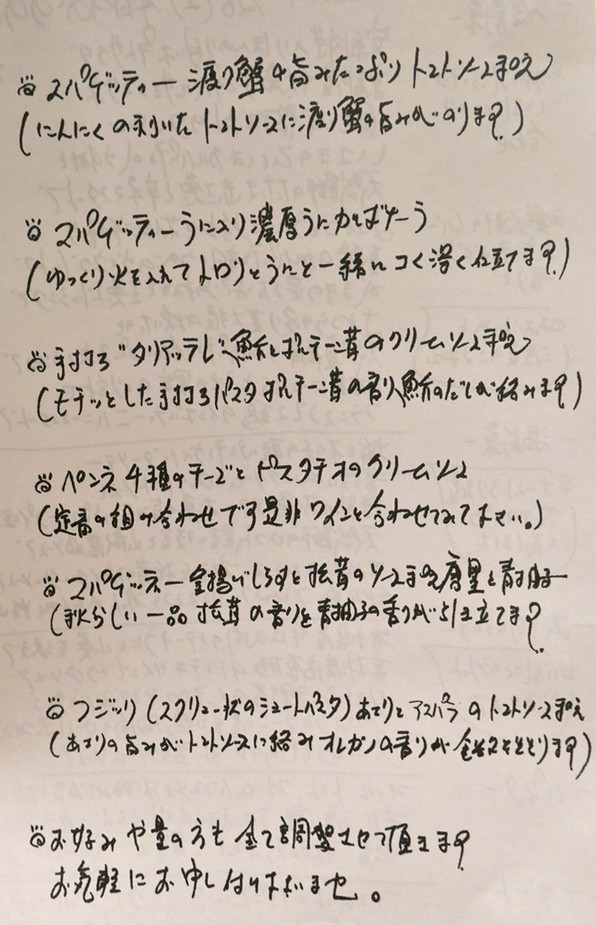 スパゲッティー 渡り蟹の旨みたっぷり トマトソース和え
(にんにくの利いた トマトソースに渡り蟹の旨みがのります)
スパゲッティー うに入り濃厚うにカルボナーラ
(ゆっくり火を入れてトロリとうにと一緒にコク深く仕立てます)
手打ち タリアッテレ 鮑とポルチーニ茸のクリームソース和え
(モチッとした手打ちパスタ ポルチーニ茸の香り 鮑のだしが絡みます)
ペンネ 4種のチーズとピスタチオのクリームソース
(定番の組み合わせです是非ワインと合わせてみて下さい。)
スパゲッティー 釜揚げしらすと松茸のソース和え 唐墨と青柚子
(秋らしい一品 松茸の香りを青柚子の香りが引き立てます
フジッリ (スクリュー状のショートパスタ) あさりとアスパラのトマトソース和え
(あさりの旨みがトマトソースに絡み オレガノの香りが食欲をそそります)
お好みや量の方も全て調整させて頂きます
お気軽にお申し付け下さいませ。